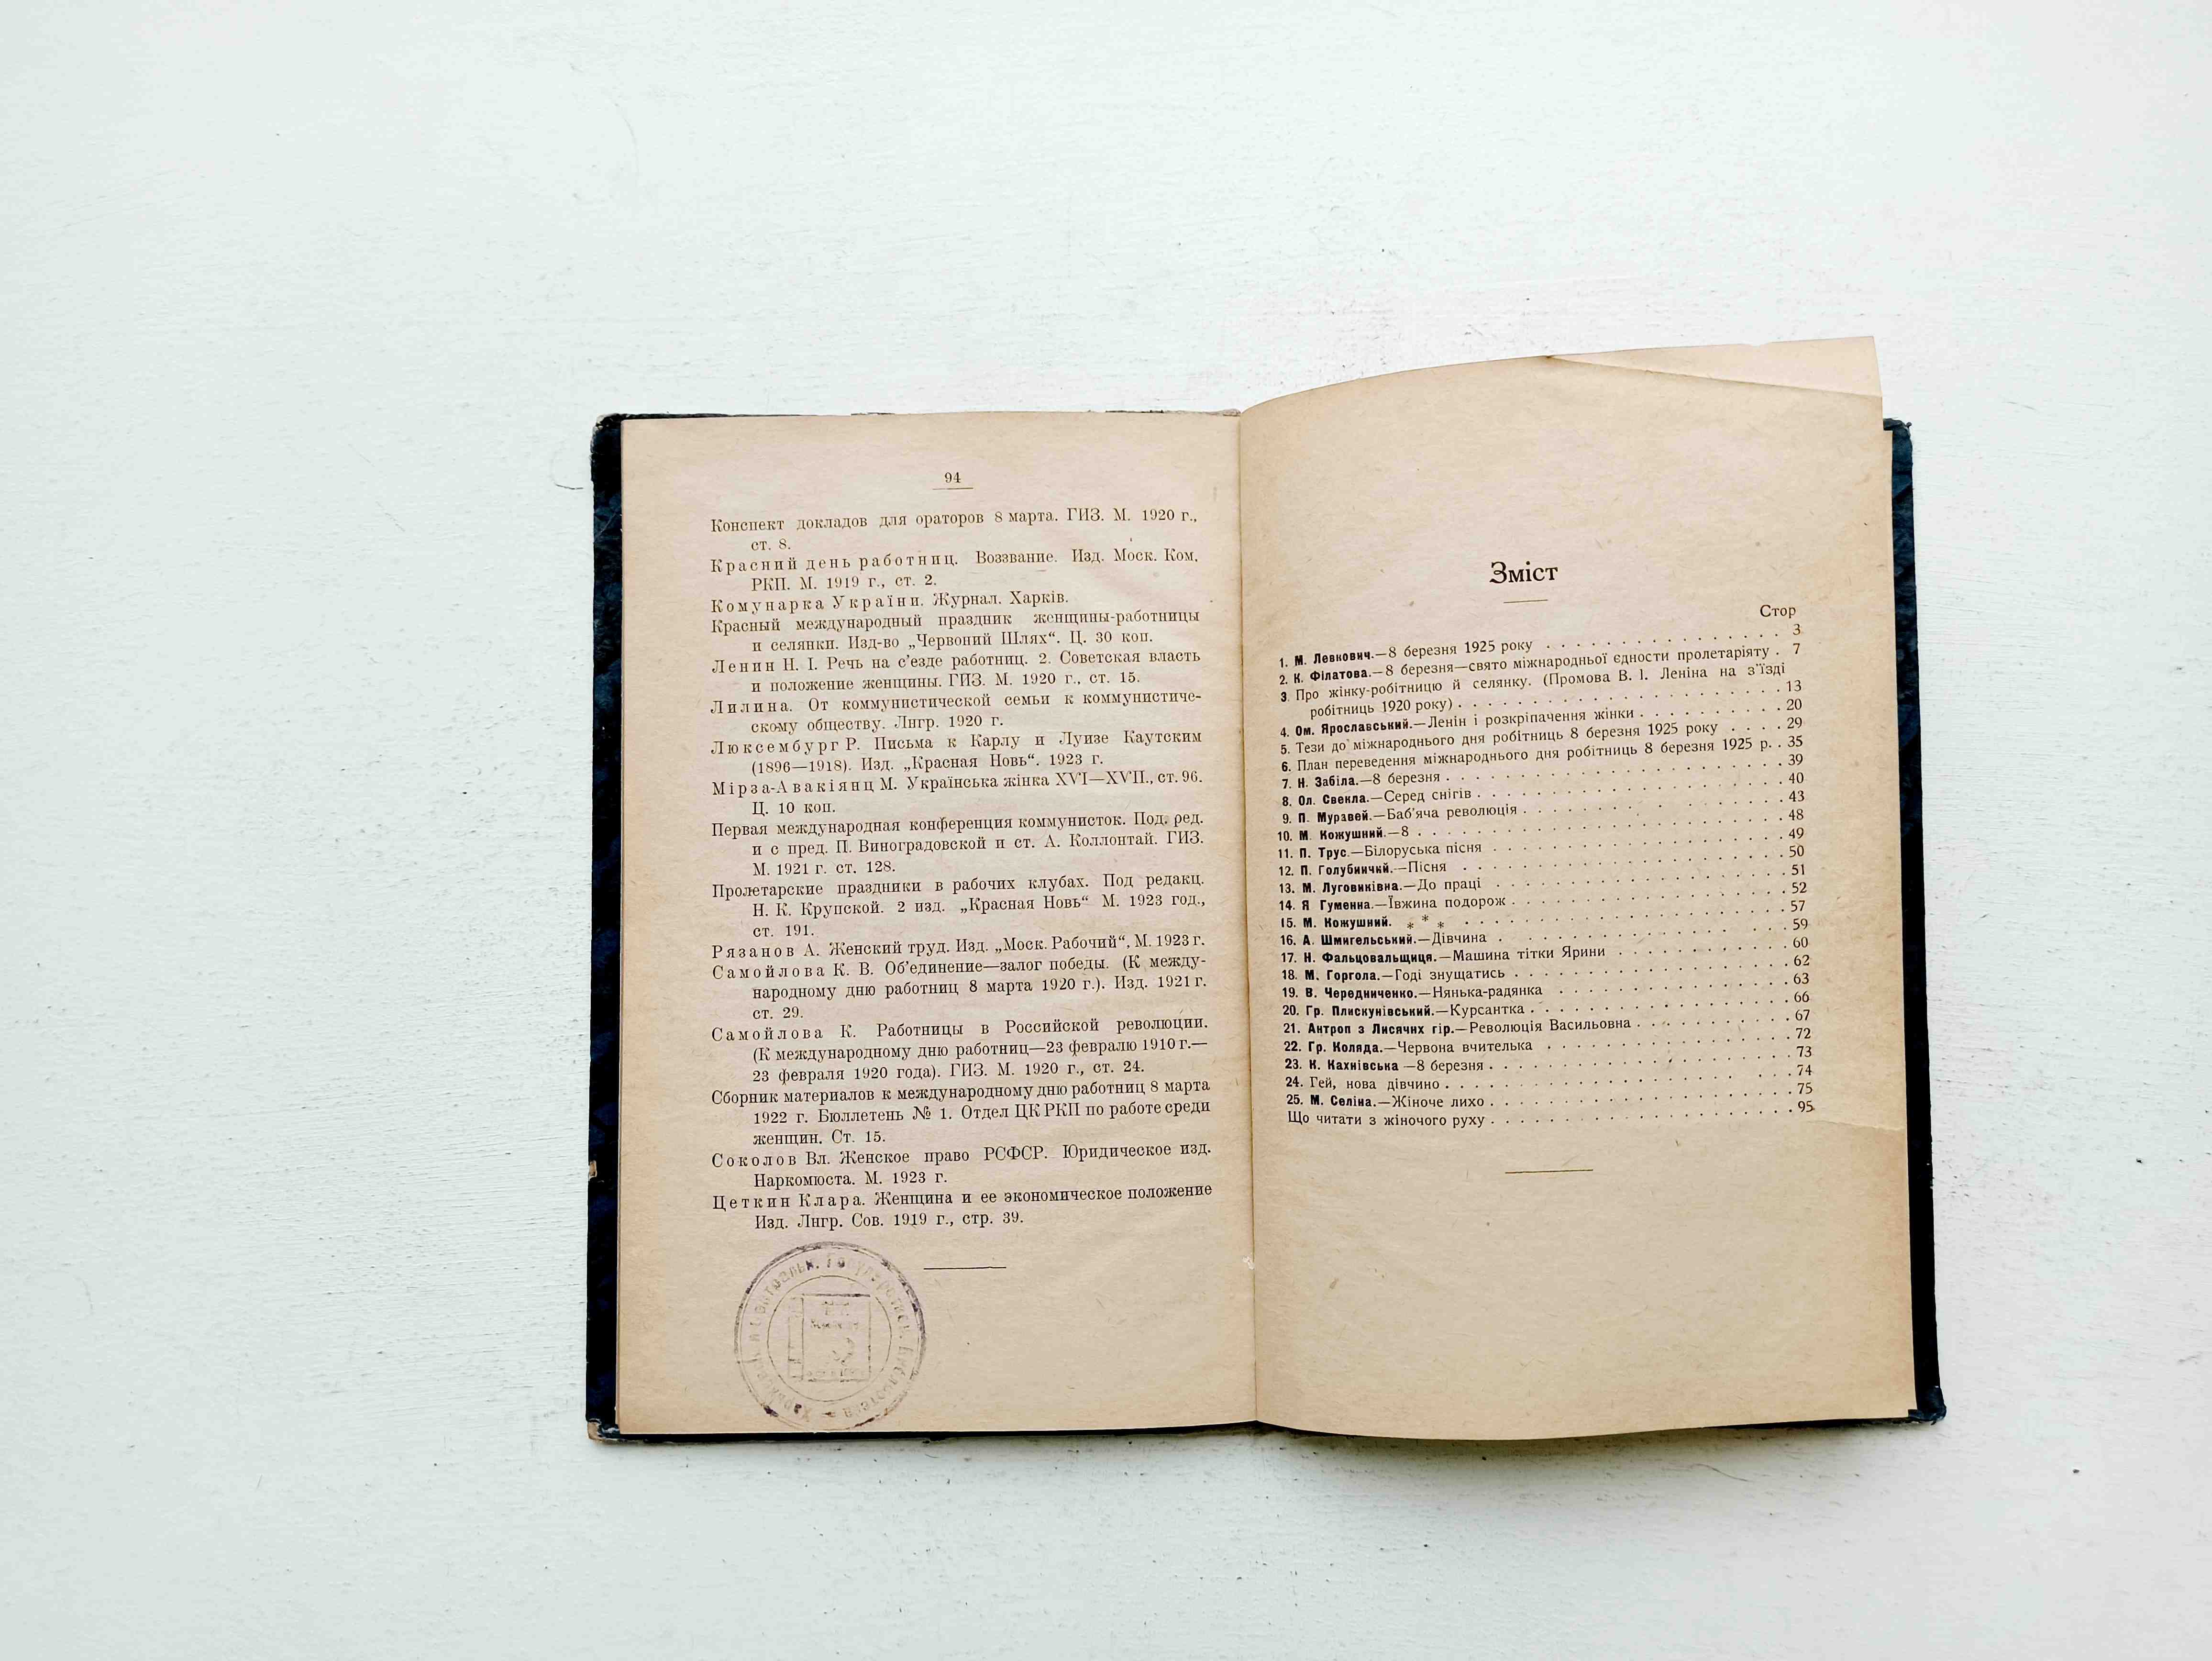 94
Конспект докладов для ораторов 8 марта. ГИЗ. М. 1920 г.,
ст. 8.
Красний день работниц. Воззвание. Изд. Моск. Ком.
РКП. М. 1919 г., ст. 2.
Комунарка України. Журнал. Харків.
Красный международный праздник женщины-работницы
и селянки. Изд-во „Червоний Шлях“. Ц. 30 коп.
Ленин Н. І. Речь на с'езде работниц. 2. Советская власть
и положение женщины. ГИЗ. М. 1920 г., ст. 15.
Лилина. От коммунистической семьи к коммунистиче-
скому обществу. Лнгр. 1920 г.
Люксембург Р. Письма к Карлу и Луизе Каутским
(1896—1918). Изд. „Красная Новь“. 1923 г.
Мірза-Авакіянц М. Українська жінка XVI—XVII., ст. 96.
Ц. 10 коп.
Первая международная конференция коммунисток. Под. ред.
и с пред. П. Виноградовской и ст. А. Коллонтай. ГИЗ.
М. 1921 г. ст. 128.
Пролетарские праздники в рабочих клубах. Под редакц.
Н. К. Крупской. 2 изд. „Красная Новь“ М. 1923 год.,
ст. 191.
Рязанов А. Женский труд. Изд. „Моск. Рабочий“. М. 1923 г.
Самойлова К. В. Об'единение—залог победы. (К между-
народному дню работниц 8 марта 1920 г.). Изд. 1921 г.
ст. 29.
Самойлова К. Работницы в Российской революции.
(К международному дню работниц—23 февралю 1910 г.—
23 февраля 1920 года). ГИЗ. М. 1920 г., ст. 24.
Сборник материалов к международному дню работниц 8 марта
1922 г. Бюллетень № 1. Отдел ЦК РКП по работе среди
женщин. Ст. 15.
Соколов Вл. Женское право РСФСР. Юридическое изд.
Наркомюста. М. 1923 г.
Цеткин Клара. Женщина и ее экономическое положение
Изд. Лнгр. Сов. 1919 г., стр. 39.
Зміст
Стор
1. М. Левкович.—8 березня 1925 року . . . 3
2. К. Філатова.—8 березня—свято міжнародньої єдности пролетаріяту . 7
3. Про жінку-робітницю й селянку. (Промова В. І. Леніна на з'їзді
робітниць 1920 року) . . . 13
4. Ом. Ярославський.—Ленін і розкріпачення жінки . . . 20
5. Тези до міжнароднього дня робітниць 8 березня 1925 року . . . 29
6. План переведення міжнароднього дня робітниць 8 березня 1925 р. . 35
7. Н. Забіла.—8 березня . . . 39
8. Ол. Свекла.—Серед снігів . . . 40
9. П. Муравей.—Баб'яча революція . . . 43
10. М. Кожушний.—8 . . . 48
11. П. Трус.—Білоруська пісня . . . 49
12. П. Голубничий.—Пісня . . . 50
13. М. Луговиківна.—До праці . . . 51
14. Я Гуменна.—Ївжина подорож . . . 52
15. М. Кожушний. * * * . . . 57
16. А. Шмигельський.—Дівчина . . . 59
17. Н. Фальцовальщиця.—Машина тітки Ярини . . . 60
18. М. Горгола.—Годі знущатись . . . 62
19. В. Чередниченко.—Нянька-радянка . . . 63
20. Гр. Плискунівський.—Курсантка . . . 66
21. Антроп з Лисячих гір.—Революція Васильовна . . . 67
22. Гр. Коляда.—Червона вчителька . . . 72
23. К. Кахнівська —8 березня . . . 73
24. Гей, нова дівчино . . . 74
25. М. Селіна.—Жіноче лихо . . . 75
Що читати з жіночого руху . . . 95